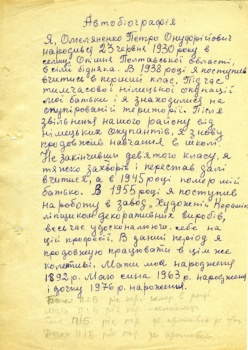 Автобіографія
Я, Омеляненко Петро Онуфрійович
народився 23 червня 1930 року в
селищі Опішня Полтавської області,
в сім'ї бідняка. В 1938 році я поступив
вчитися в перший клас. Під час
тимчасової німецької окупації
мої батьки і я знаходилися на
окупірованій території. Після
звільнення нашого району від
німецьких окупантів, я знову
продовжив навчання в школі.
Не закінчивши девятого класу, я
тяжко захворів і перестав далі
вчитися, а в 1945 році помер мій
батько. В 1955 році я поступив
на роботу в завод "Художній Керамік"
ліпщиком декоративних виробів,
весь час удосконалюю себе на
цій професії. В даний період я
продовжую працювати в цім же
колективі. Мати моя народження
1892 р. Маю сина 1963 р. народження
і дочку 1976 р. народження.